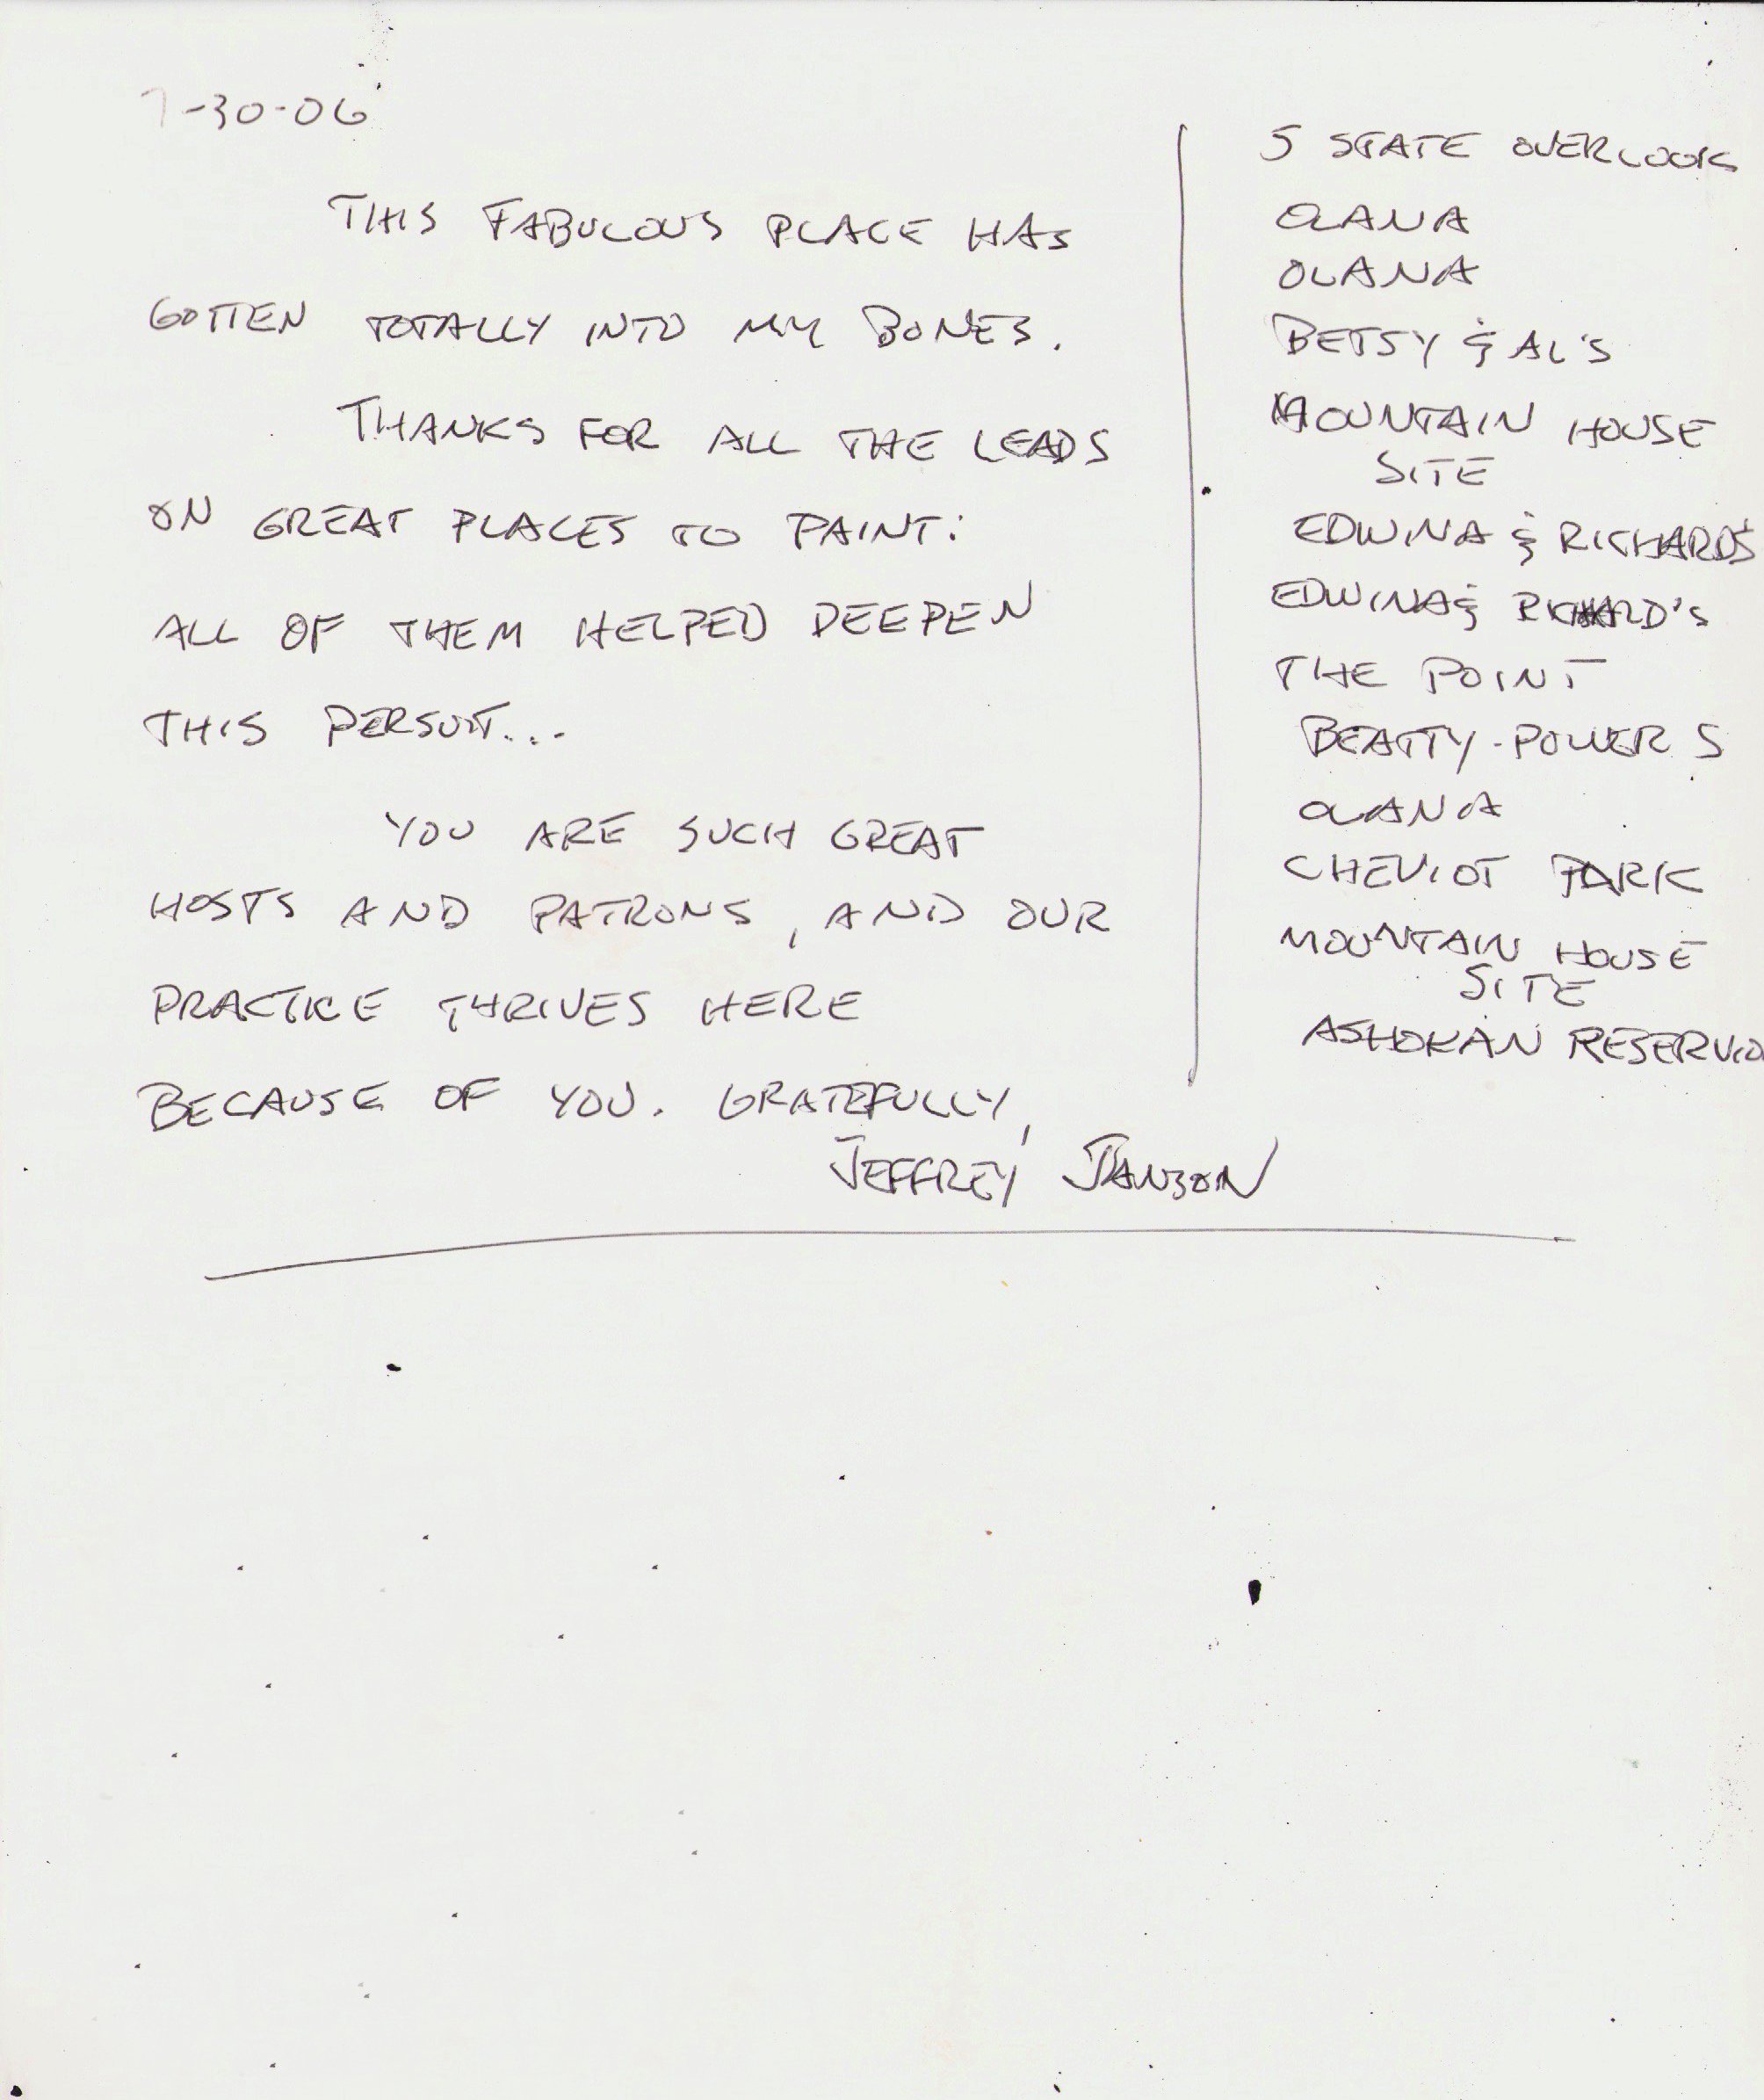 7-30-06
THIS FABULOUS PLACE HAS
GOTTEN TOTALLY INTO MY BONES.
THANKS FOR ALL THE LEADS
ON GREAT PLACES TO PAINT:
ALL OF THEM HELPED DEEPEN
THIS PERSUIT...
YOU ARE SUCH GREAT
HOSTS AND PATRONS, AND OUR
PRACTICE THRIVES HERE
BECAUSE OF YOU. GRATEFULLY,
JEFFREY JANSON
5 STATE OVERLOOK
OLANA
OLANA
BETSY & AL'S
MOUNTAIN HOUSE
SITE
EDWINA & RICHARD'S
EDWINA & RICHARD'S
THE POINT
BEATTY-POWER S
OLANA
CHEVIOT PARK
MOUNTAIN HOUSE
SITE
ASHOKAN RESERVIO